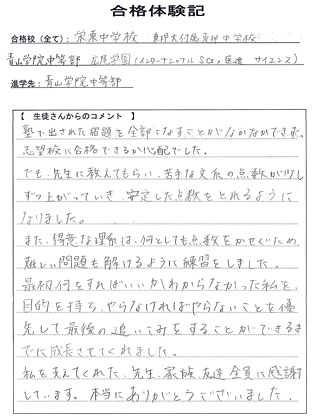 合格体験記
合格校（全て）: 栄東中学校 東邦大付属東邦中学校
青山学院中等部 広尾学園（インターナショナルSGr, 医進サイエンス）
進学先: 青山学院中等部
【 生徒さんからのコメント 】
塾で出された宿題を全部こなすことがなかなかできず、
志望校に合格できるか心配でした。
でも、先生に教えてもらい、苦手な文系の点数が少し
ずつ上がっていき、安定した点数をとれるように
なりました。
また、得意な理系は、何としても点数をかせぐため、
難しい問題も解けるように練習をしました。
最初何をすればいいかわからなかった私を、
目的を持ち、やらなければやらないことを優
先して最後の追いこみをすることができるま
でに成長させてくれました。
私を支えてくれた、先生、家族、友達全員に感謝
しています。本当にありがとうございました。